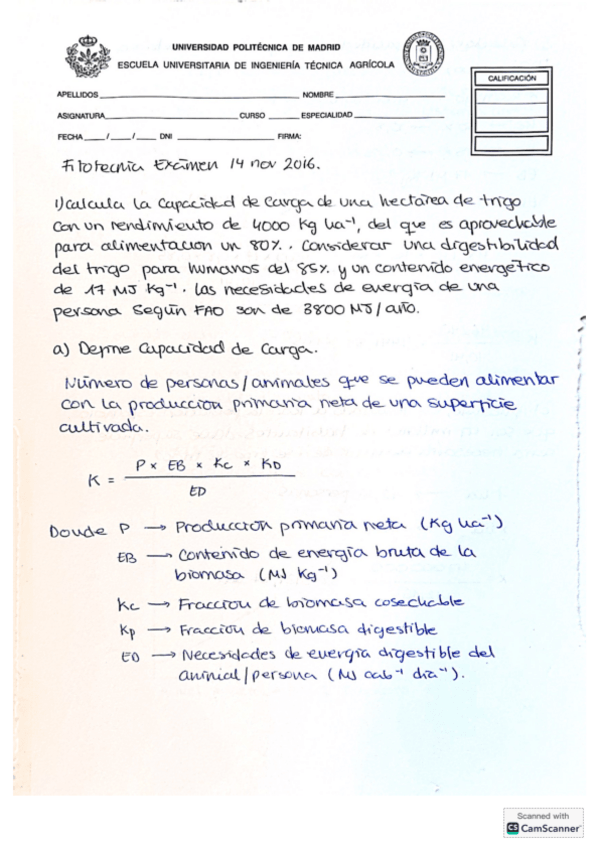 UNIVERSIDAD POLITÉCNICA DE MADRID
ESCUELA UNIVERSITARIA DE INGENIERÍA TÉCNICA AGRÍCOLA
CALIFICACIÓN
APELLIDOS NOMBRE
ASIGNATURA CURSO ESPECIALIDAD
FECHA / / DNI FIRMA:
Fitotecnia Examen 14 nov 2016.
1) Calcula la capacidad de carga de una hectárea de trigo
con un rendimiento de 4000 Kg ha⁻¹, del que es aprovechable
para alimentacion un 80%. Considerar una digestibilidad
del trigo para humanos del 85% y un contenido energético
de 17 MJ Kg⁻¹. Las necesidades de energía de una
persona según FAO son de 3800 MJ/año.
a) Define Capacidad de Carga.
Número de personas/animales que se pueden alimentar
con la produccion primaria neta de una superficie
cultivada.
K = P x EB x Kc x KD
ED
Donde P → Produccion primaria neta (Kg ha⁻¹)
EB → Contenido de energía bruta de la
biomasa (MJ Kg⁻¹)
Kc → Fraccion de biomasa cosechable
Kp → Fracción de biomasa digestible
ED → Necesidades de energía digestible del
animal/persona (MJ cab⁻¹ dia⁻¹).
Scanned with
CS CamScanner